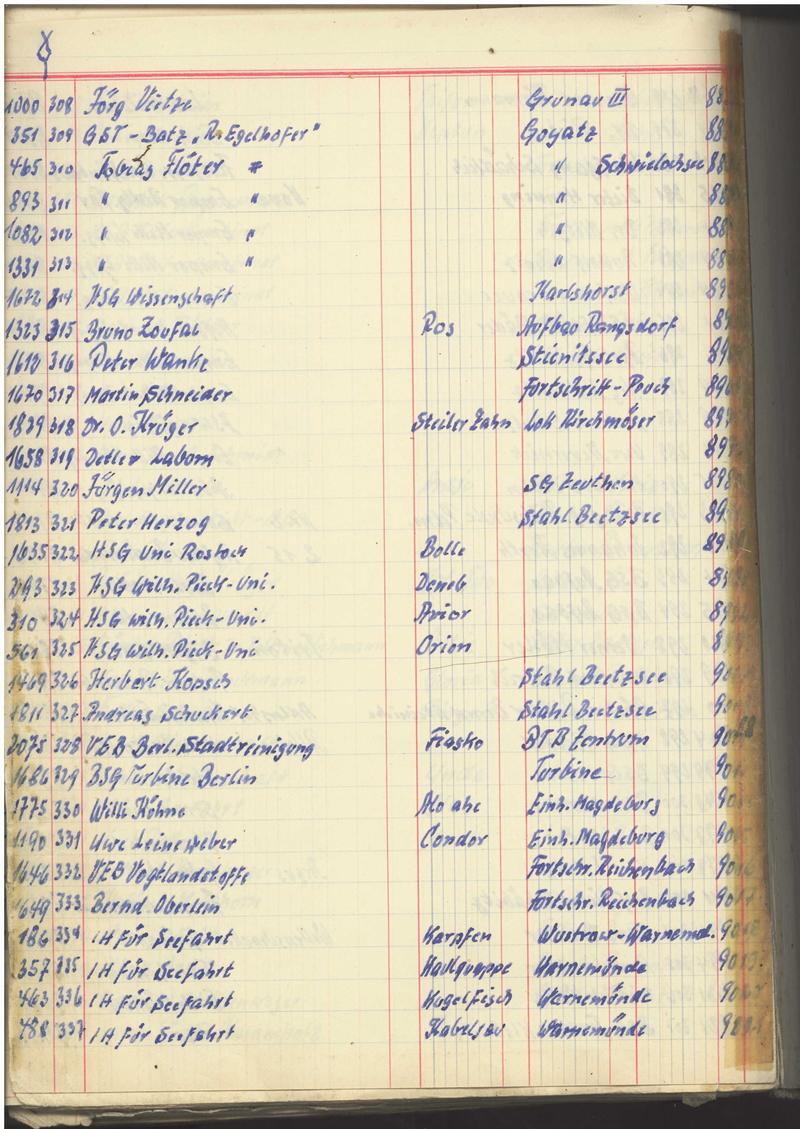 1000 308 Jörg Vietze Grunau III 88
351 309 GST-Batz „R. Egelhofer" Goyatz 88
465 310 Tobias Flöter # " Schwielochsee 88
893 311 " " " 88
1082 312 " " " 88
1331 313 " " " 88
1672 314 HSG Wissenschaft Karlshorst 89
1323 315 Bruno Zoufal Ros Aufbau Rangsdorf 89
1612 316 Peter Wanke Stienitssee 89
1670 317 Martin Schneider Fortschritt-Pouch 896
1839 318 Dr. O. Krüger Steiler Zahn Lok Kirchmöser 897
1658 319 Detlev Laborn 897
1114 320 Jürgen Miller SG Zeuthen 898
1813 321 Peter Herzog Stahl Beetzsee 89
1635 322 HSG Uni Rostock Bolle 89
293 323 HSG Wilh. Pieck-Uni. Deneb 89
310 324 HSG wilh. Pieck-Uni. Avior 89
561 325 HSG wilh. Pieck-Uni Orion 89
1469 326 Herbert Kopsch Stahl Beetzsee 90
1811 327 Andreas Schuckert Stahl Beetzsee 90
2075 328 VEB Berl. Stadtreinigung Fiasko BTB Zentrum 90
1686 329 BSG Turbine Berlin Turbine 90
1775 330 Willi Köhne Alo ahe Einh. Magdeburg 90
1190 331 Uwe Leineweber Condor Einh. Magdeburg 90
1646 332 VEB Vogtlandstoffe Fortschr. Reichenbach 90
1649 333 Bernd Oberlein Fortschr. Reichenbach 90
186 334 IH für Seefahrt Karpfen Wustrow-Warnemd. 90
357 335 IH für Seefahrt Kaulquappe Warnemünde 90
463 336 IH für Seefahrt Kugelfisch Warnemünde 90
488 337 IH für Seefahrt Kabeljau Warnemünde 9